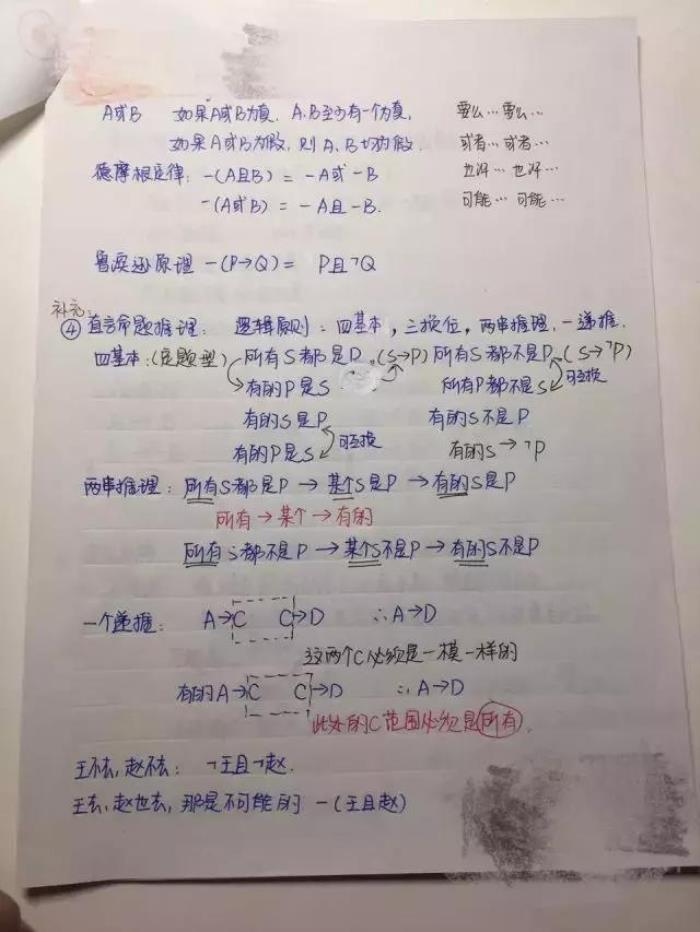 A或B 如果A或B为真，A、B至少有一个为真， 要么…要么…
如果A或B为假，则A、B切为假． 或者…或者…
德摩根定律：－(A且B) ＝ －A或－B 也许…也许…
－(A或B) ＝ －A且－B． 可能…可能…
还原理 －(P→Q)＝ P且¬Q
补充：
④ 直言命题推理： 逻辑原则：四基本，三换位，两串推理，一递推．
四基本：(定题型) 所有S都是P．(S→P) 所有S都不是P．(S→¬P)
有的P是S 所有P都不是S 可互换
有的S是P 有的S不是P
有的P是S 可互换 有的S→¬P
两串推理：所有S都是P→某个S是P→有的S是P
所有→某个→有的
所有S都不是P→某个S不是P→有的S不是P
一个递推： A→C C→D ∴A→D
这两个C必须是一模一样的
有的A→C C→D ∴A→D
此处的C范围必须是所有．
王不去，赵不去： ¬王且¬赵．
王去，赵也去，那是不可能的 －(王且赵)